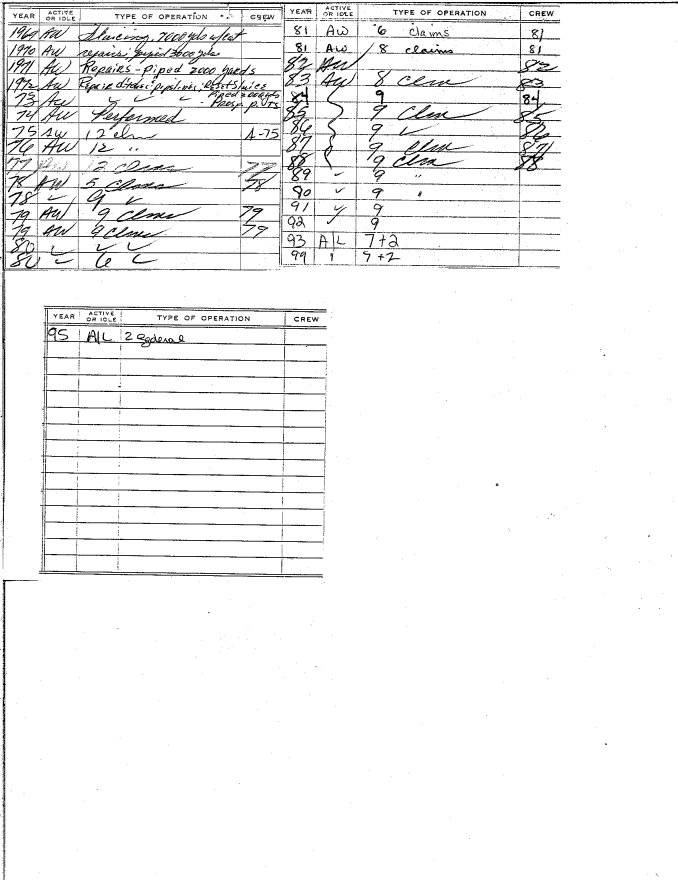 YEAR ACTIVE OR IDLE TYPE OF OPERATION CREW
1969 AW Sluicing, 7000 yds
1970 AW repairs, piped 3000 yds
1971 AW Repairs - piped 2000 yards
1972 AW Repaired pipelines, reset sluice
piped 2000 yds
73 AW ✓ ✓ ✓ - Prosp. pits
74 AW Performed
75 AW 12 clm A-75
76 AW 12 "
77 AW 12 Clms 77
78 AW 5 Clms 78
78 ✓ 9 ✓
79 AW 9 Clms 79
79 AW 9 Clms 79
80 ✓ ✓ ✓
80 ✓ 6 ✓
YEAR ACTIVE OR IDLE TYPE OF OPERATION CREW
81 AW 6 claims 81
81 AW 8 claims 81
82 AW 82
83 AW 8 Clm 83
84 9 84
85 9 Clm 85
86 9 ✓ 86
87 9 Clm 87
88 9 Clm 88
89 ✓ 9 "
90 ✓ 9 "
91 ✓ 9
92 ✓ 9
93 A/L 7+2
99 " 9+2
YEAR ACTIVE OR IDLE TYPE OF OPERATION CREW
95 A/L 2